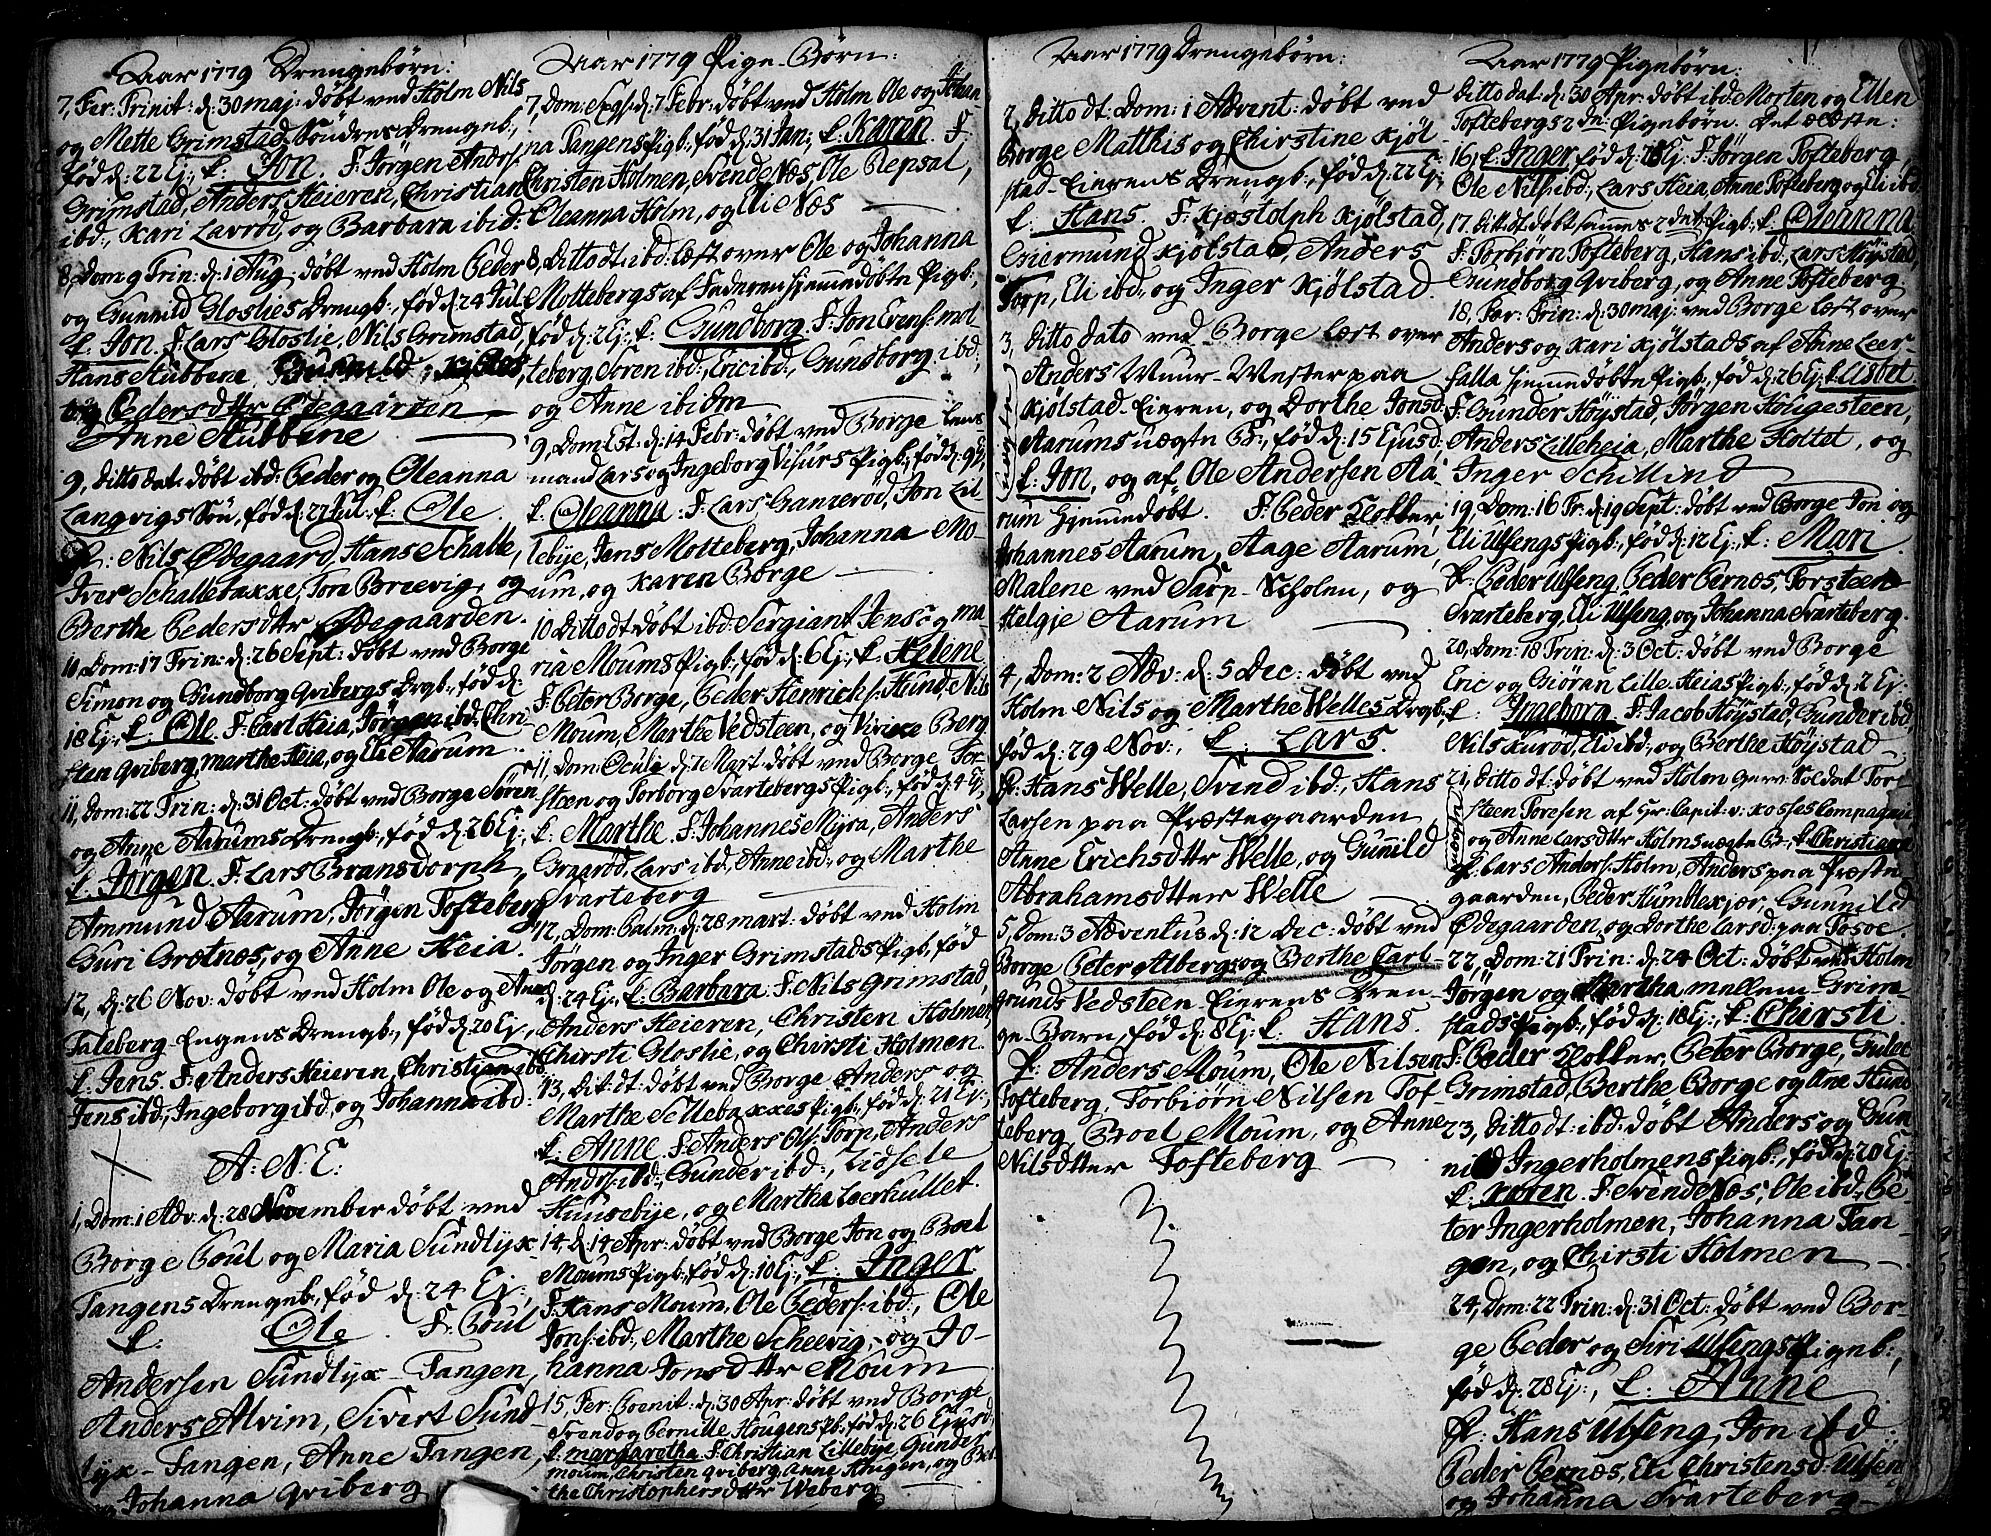 Aar 1779 Drengebörn:
7, Fer: Trinit: d: 30 maj: döbt ved Holm Nils
og Mette Grimstad Söndres Drengeb:,
föd d: 22 Ej:, k: Jon. F: Jörgen Anders:
Grimstad, Anders Heieren, Christian
ibd:, Kari Lavröd, og Barbara ibid:
8, Dom: 9 Trin: d: 1 Aug: döbt ved Holm Peder
og Gunnild Gloslies Drengb:, föd d: 24 Jul:
k. Jon. F: Lars Gloslie, Nils Grimstad,
Hans Stubbene,
og Peders dttr Ödegaarden
Anne Stubbene
9, ditto dat: döbt ibd: Peder og Oleanna
Langvigs Sön, föd d: 22 Jul: k: Ole.
F: Nils Ödegaard, Hans Schalle,
Iver Schallebakke, Tore Breevig, og
Berthe Pedersdttr Ödegaarden.
10, Dom: 17 Trin: d: 26 Sept: döbt ved Borge
Simon og Gundborg Qvibergs Drgb:, föd d:
18 Ej:, k: Ole. F: Carl Heia, Jörgen ibd, Chri-
sten Qviberg, marthe Heia, og Eli Aarum.
11, Dom: 22 Trin: d: 31 Oct: döbt ved Borge Sören
og Anne Aarums Drengb:, föd d: 26 Ej:,
k. Jörgen. F: Lars Bransdorph,
Ammund Aarum, Jörgen Tofteberg
Guri Grotnes, og Anne Heia.
12, d: 26 Nov: döbt ved Holm Ole og Anne
Taleberg-Engens Drengb:, föd d: 20 Ej:,
k. Jens. F: Anders Heieren, Christian ibd
Jens ibd:, Ingeborg ibd, og Johanna ibd:
A: N: E:
1, Dom: 1 Adv: d: 28 November döbt ved
Borge Poul og Maria Sundlyx-
Tangens Drengeb:, föd d: 24 Ej:,
k. Ole. F: Poul
Andersen Sundlyx-Tangen,
Anders Alvim, Sivert Sund-
lyx-Tangen, Anne Tangen,
og Johanna Qviberg
Aar 1779 Pige-Börn:
7, Dom: d: 7 Febr: döbt ved Holm Ole og Johan-
na Tangens Pigb:, föd d: 31 Jan:, k. Karen. F:
Christen Holmen, Svend Næs, Ole Repsal,
Oleanna Holm, og Eli Næs
8, Ditto dt: ibd: læst over Ole og Johanna
Mottebergs af Faderen hjemmedöbte Pigb:,
föd d: 2 Ej: k: Gundborg. F: Jon Evens: mot-
teberg, Sören ibd:, Eric ibd:, Gundborg ibd:,
og Anne ibidm
9, Dom: Est: d: 14 Febr: döbt ved Borge Lens
mand Lars og Ingeborg Visurs Pigb:, föd d: 9 Ej:
k. Oleanna. F: Lars Ganneröd, Jon Lil-
lebye, Jens Motteberg, Johanna Mo-
um, og Karen Borge
10 Ditto dt: döbt ibd: Sergiant Jens og ma
ria Moums Pigb:, föd d: 6 Ej:, k. Helene.
F: Peter Borge, Peder Henrichs: Hund, Nils
Moum, Marthe Vedsteen, og Virike Berg
11, Dom: Oculi d: 7 Mart: döbt ved Borge Tor-
steen og Torborg Svartebergs Pigb:, föd d: 4 Ej:
k. Marthe. F: Johannes Myra, Anders
Graaröd, Lars ibd:, Anne ibd:, og Marthe
Svarteberg
12, Dom: Palm: d: 28 mart: döbt ved Holm
Jörgen og Inger Grimstads Pigb:, föd
d: 24 Ej:, k. Barbara. F: Nils Grimstad,
Anders Heieren, Christen Holmen,
Chirsti Gloslie, og Chirsti Holmen.
13, Dit: dt: döbt ved Borge Anders og
Marthe Sellebakkes Pigb:, föd d: 21 Ej:,
k. Anne. F: Anders Ols: Torp, Anders
Anders: ibd:, Gunder ibd:, Lidsele
Huusebye, og Martha Leerhullet.
14, d: 14 Apr: döbt ved Borge Jon og Boel
Moums Pigb:, föd d: 10 Ej:, k. Inger.
F: Hans Moum, Ole Peders: ibd:, Ole
Jons: ibd:, Marthe Scheevig, og Jo-
hanna Jonsdttr Moum
15, Fer: Poenit: d: 30 Apr: döbt ved Borge
Svend og Pernille Hougens Pb:, föd d: 26 Ejusd:
k. margaretha. F: Christian Lillebye, Gunder
moum, Christen Qviberg, Anne Hougen, og Ber-
the Christophersdttr Weberg
Aar 1779 Drengebörn:
2, Ditto dt: Dom: 1 Advent: döbt ved
Borge Matthis og Chirstine Kjöl-
stad-Eierens Drengb:, föd d: 22 Ej:
k: Hans. F: Kjöstolph Kjölstad,
Giermund Kjölstad, Anders
Torp, Eli ibd:, og Inger Kjölstad.
3, Ditto dato ved Borge læst over
Anders Muur-Mester paa
Kjölstad-Eieren, og Dorthe Jonsd:
Aarums uægte B:, föd d: 15 Ejusd:
k. Jon, og af Ole Andersen Aa-
rum hjemmedöbt. F: Peder Holter,
Johannes Aarum, Aage Aarum,
Malene ved Sarp-Scholen, og
Helgje Aarum
4, Dom: 2 Adv: d: 5 Dec: döbt ved
Holm Nils og Marthe Welles Drgb:,
föd d: 29 Nov:, k. Lars.
F: Hans Welle, Svend ibd:, Hans
Larsen paa Præstegaarden,
Anne Erichsdttr Welle, og Gunild
Abrahamsdtter Welle
5, Dom: 3 Adventus d: 12 Dec: döbt ved
Borge Peter Alberg, og Berthe Carl-
grunds Vedsteen-Eierens Dren-
ge-Barn, föd d: 8 Ej: k. Hans.
F: Anders Moum, Ole Nilsen
Tofteberg, Torbiörn Nilsen Tof-
teberg, Boel Moum, og Anne
Nilsdtter Tofteberg
Aar 1779 Pigebörn:
Ditto dat: d: 30 Apr: döbt ibd: Morten og Ellen
Toftebergs 2de: Pigebörn. Det ældste:
16, k. Inger, föd d: 28 Ej: F: Jörgen Tofteberg,
Ole Nils: ibd:, Lars Heia, Anne Tofteberg og Eli ibd:
17. Dit: dt: döbt sammes 2det Pigb:, k. Oleanna.
F: Torbjörn Tofteberg, Hans ibd:, Lars Höystad,
Gundborg Qviberg, og Anne Tofteberg
18, Fer: Trin: d: 30 maj: ved Borge læst over
Anders og Kari Kjölstads af Anne Leer
falla hjemmedöbte Pigb:, föd d: 26 Ej: k. Lisbet
F: Gunder Höystad, Jörgen Hougesteen,
Anders Lilleheia, Marthe Holtet, og
Inger Schillind
19, Dom: 16 Tr: d: 19 Sept: döbt ved Borge Jon og
Eli Ulfengs Pigb:, föd d: 12 Ej:, k: Mari.
F: Peder Ulfeng, Peder Pernæs, Torsteen
Svarteberg, Eli Ulfeng, og Johanna Svarteberg.
20, Dom: 18 Trin: d: 3 Oct: döbt ved Borge
Eric og Giöran Lille-Heias Pigb:, föd d: 2 Ej:
k: Ingeborg. F: Jacob Höystad, Gunder ibd:
Nils Kuröd, Eli ibd:, og Berthe Höystad
21, Ditto dt: döbt ved Holm gev: Soldat Tor-
steen Toresen af Hr: Capit: v: Kosses Compagnie,
og Anne Larsdttr Holms uægte B:, k. Christiana
F: Lars Anders: Holm, Anders paa Præste-
gaarden, Peder Humblekjær, Gunnild
Ödegaarden, og Dorthe Larsd: paa Tosoe.
22, Dom: 21 Trin: d: 24 Oct: döbt ved Holm
Jörgen og Martha mellem Grim-
stads Pigb:, föd d: 18 Ej:, k. Chirsti
F: Peder Holter, Peter Borge, Gulec
Grimstad, Berthe Borge og Ane Hund
23, Ditto dt: ibd: döbt Anders og Gun
nild Ingerholmens Pigb:, föd d: 20 Ej:
k. Karen. F: Svend Næs, Ole ibd:, Pe-
ter Ingerholmen, Johanna Tan-
gen, og Chirsti Holmen
24, Dom: 22 Trin: d: 31 Oct: döbt ved Bor-
ge Peder og Siri Ulfengs Pigeb:,
föd d: 28 Ej:, k. Anne
F: Hans Ulfeng, Jon ibd:
Peder Pernæs, Eli Christensd: Ulfen
og Johanna Svarteberg